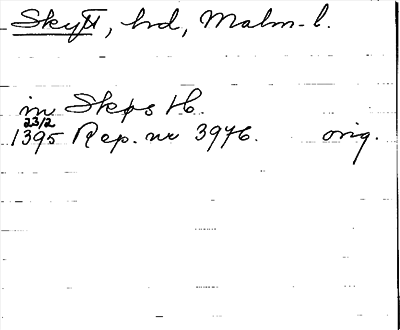 Skytt, hd, Malm. l.
in Skps H.
23/2
1395 Rep. nr 3976. orig.